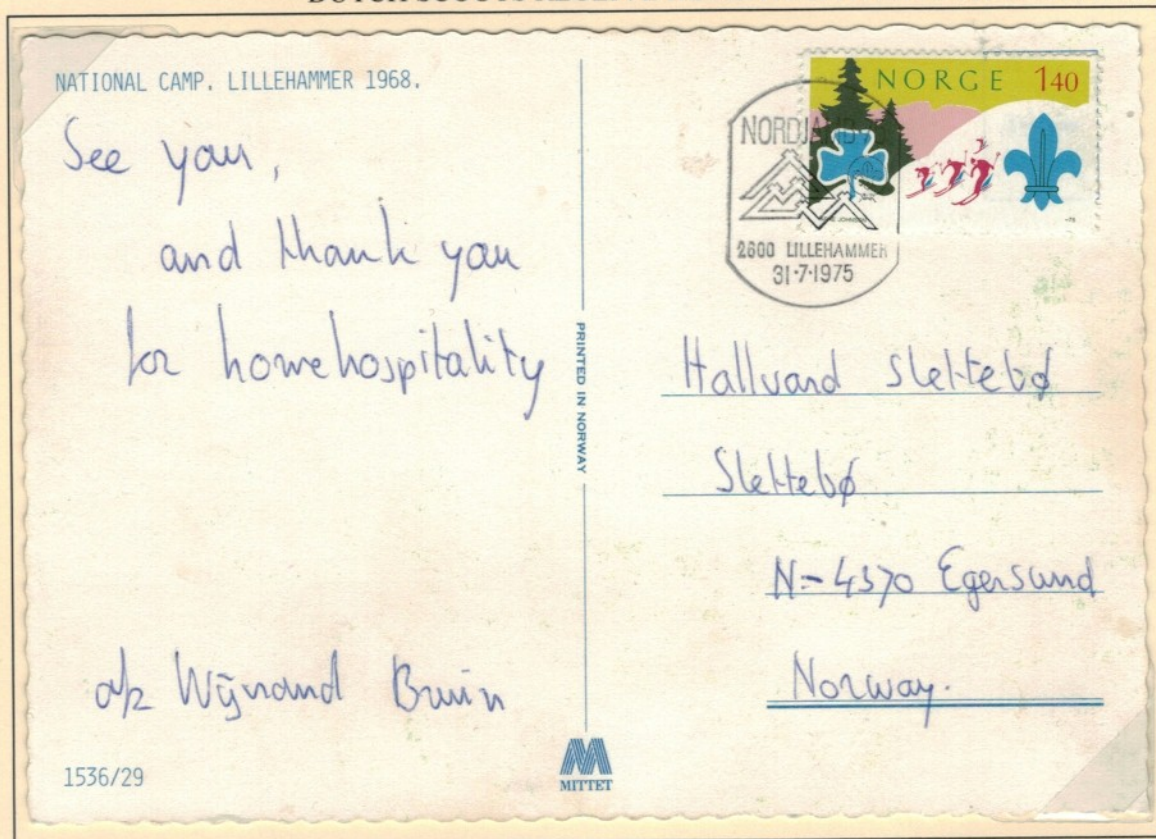 NATIONAL CAMP. LILLEHAMMER 1968.
See you,
and thank you
for homehospitality
Wijnand Bruin
1536/29
PRINTED IN NORWAY
MITTET
NORGE 140
NORDJAMB
2600 LILLEHAMMER
31-7-1975
Hallvard Slettebø
Slettebø
N-4370 Egersund
Norway.